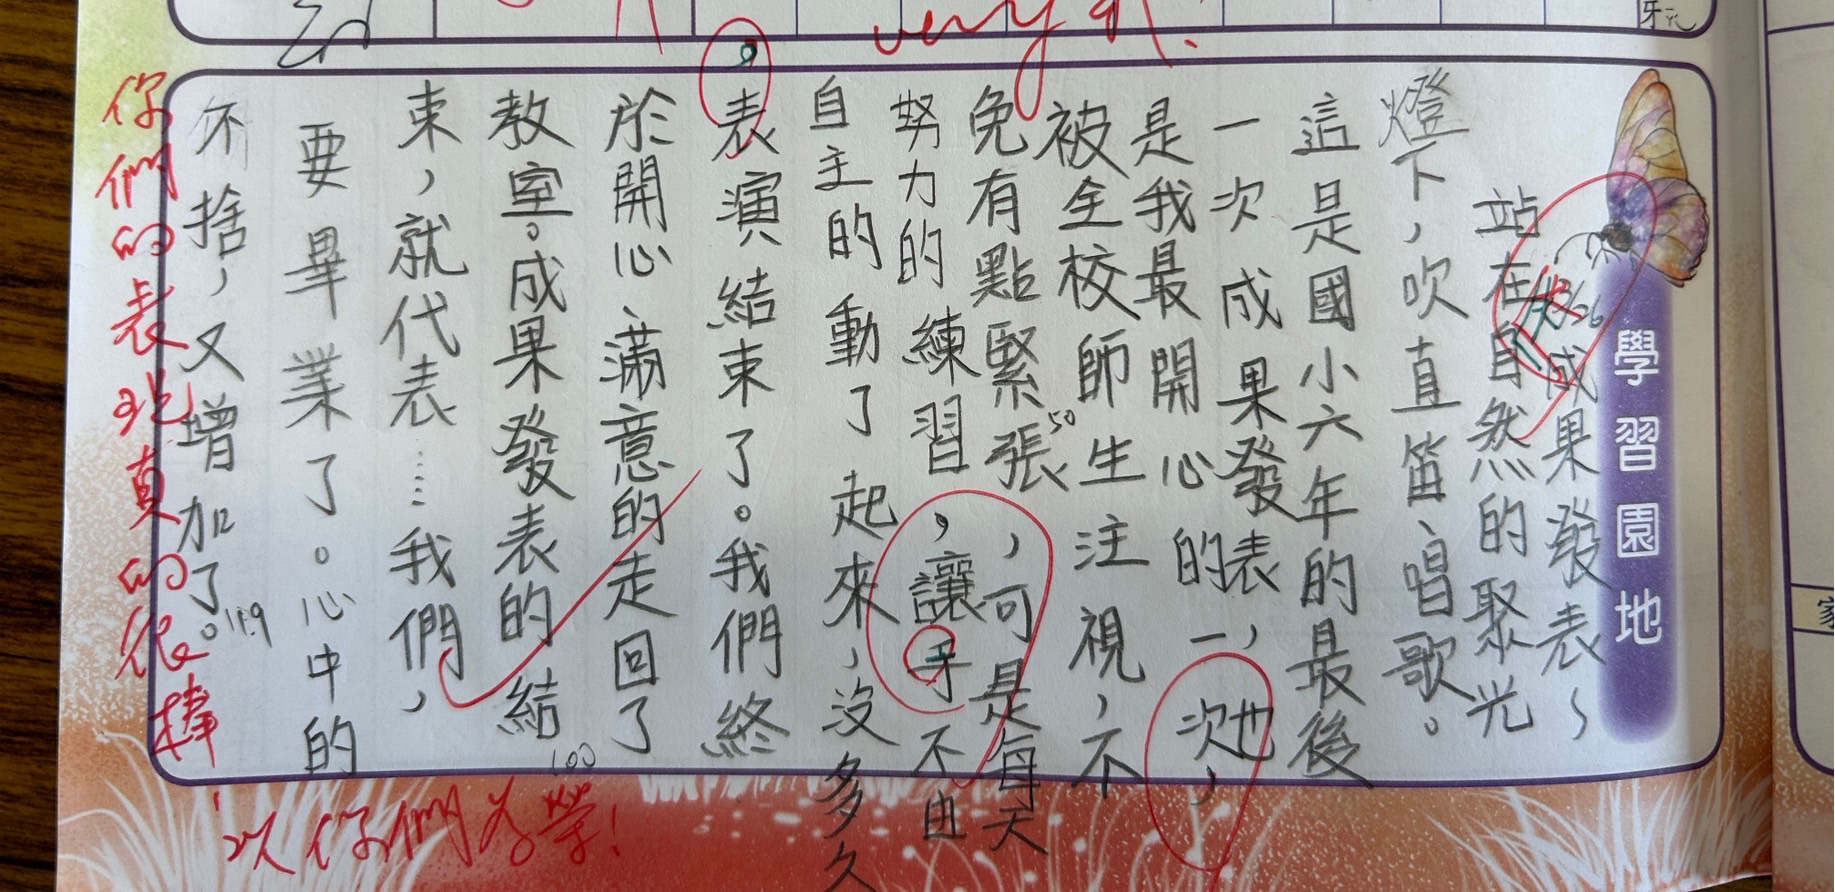 學習園地
5/26
成果發表~
站在自然的聚光
燈下,吹直笛、唱歌。
這是國小六年的最後
一次成果發表,也
是我最開心的一次,
被全校師生注視,不
免有點緊張,可是每天
50
努力的練習,讓手不由
自主的動了起來,沒多久
,表演結束了。我們終
於開心、滿意的走回了
教室。成果發表的結
100
束,就代表……我們,
要畢業了。心中的
不捨,又增加了。
119
你們的表現真的很棒!
以你們為榮!
very